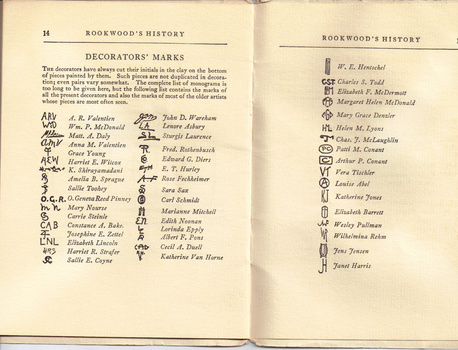 14 ROOKWOOD'S HISTORY
DECORATORS' MARKS
THE decorators have always cut their initials in the clay on the bottom
of pieces painted by them. Such pieces are not duplicated in decora-
tion; even pairs vary somewhat. The complete list of monograms is
too long to be given here, but the following list contains the marks of
all the present decorators and also the marks of most of the older artists
whose pieces are most often seen.
ARV A. R. Valentien
Wm. P. McDonald
Matt. A. Daly
AMV Anna M. Valentien
Grace Young
Harriet E. Wilcox
K. Shirayamadani
Amelia B. Sprague
Sallie Toohey
O.G.R. O. Geneva Reed Pinney
Mary Nourse
Carrie Steinle
CAB Constance A. Baker
Josephine E. Zettel
LNL Elizabeth Lincoln
HRS Harriet R. Strafer
Sallie E. Coyne
John D. Wareham
LA Lenore Asbury
SL Sturgis Laurence
Fred. Rothenbusch
Edward G. Diers
E. T. Hurley
Rose Fechheimer
Sara Sax
Carl Schmidt
Marianne Mitchell
EN Edith Noonan
Lorinda Epply
Albert F. Pons
CAD Cecil A. Duell
Katherine Van Horne
ROOKWOOD'S HISTORY
W. E. Hentschel
CST Charles S. Todd
Elizabeth F. McDermott
Margaret Helen McDonald
Mary Grace Denzler
HL Helen M. Lyons
Chas. J. McLaughlin
PC Patti M. Conant
C Arthur P. Conant
VT Vera Tischler
A Louise Abel
Katherine Jones
Elizabeth Barrett
Wesley Pullman
Wilhelmina Rehm
Jens Jensen
Janet Harris